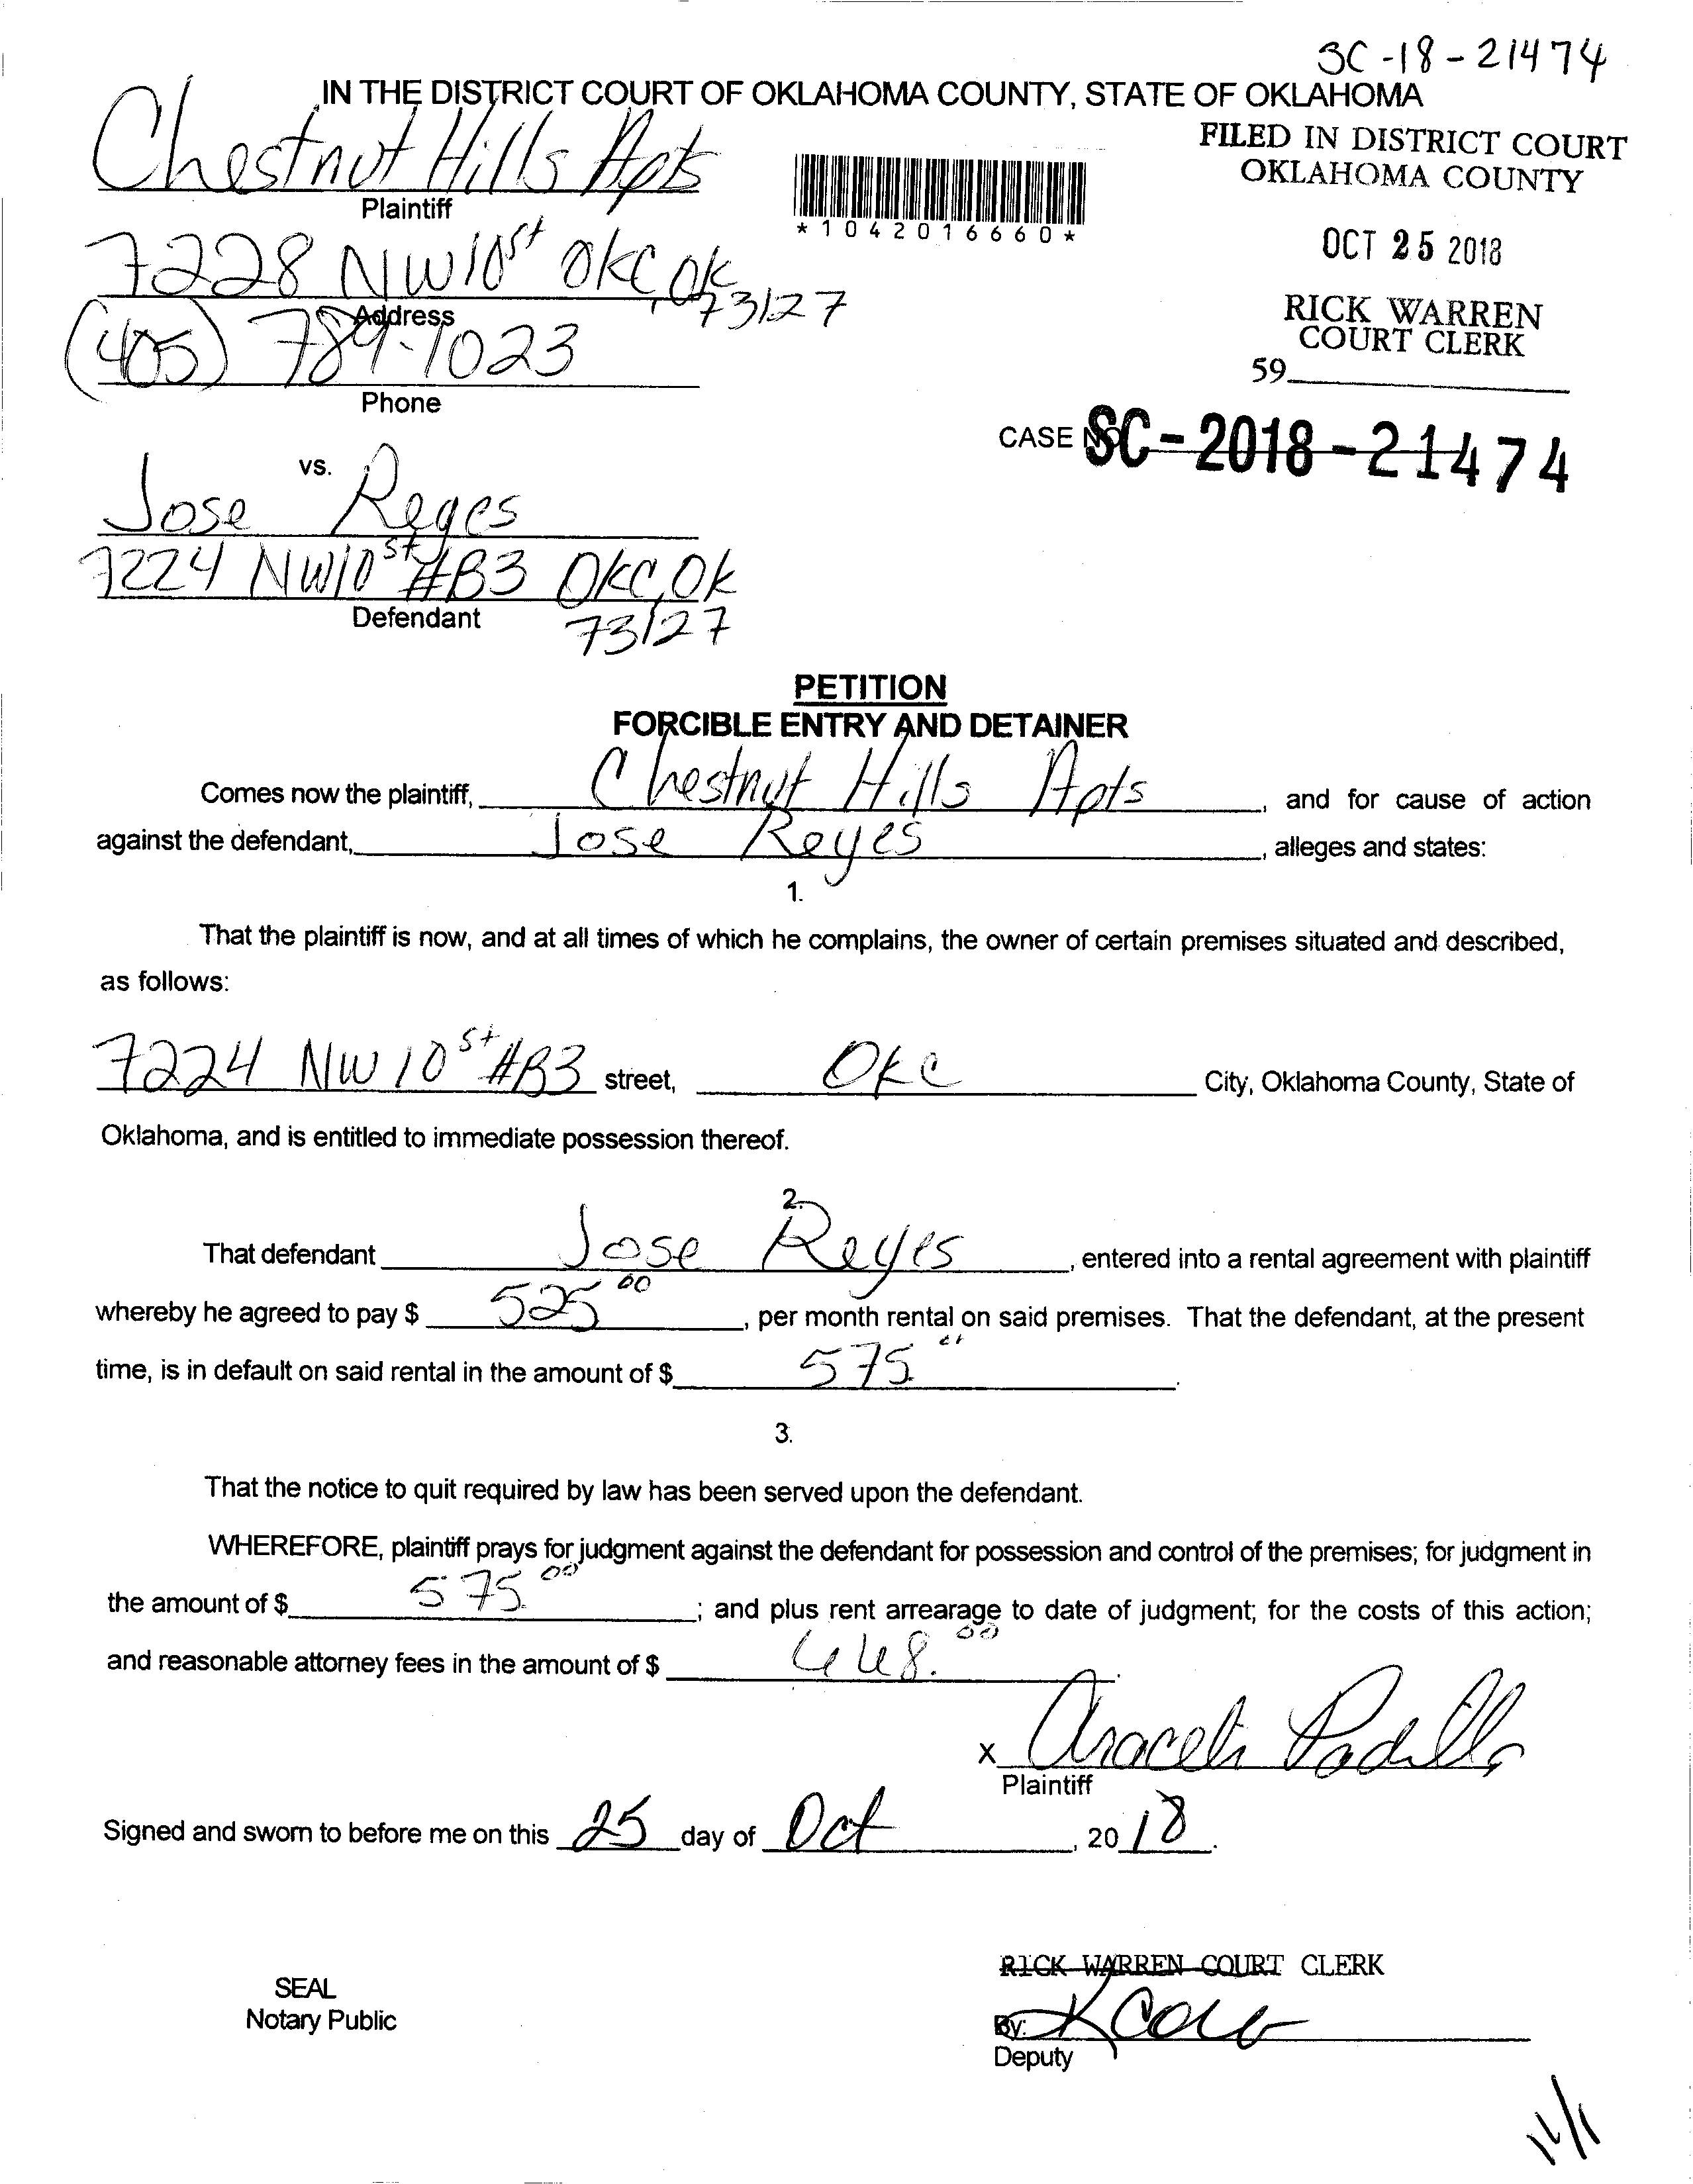 SC-18-21474
IN THE DISTRICT COURT OF OKLAHOMA COUNTY, STATE OF OKLAHOMA
Chestnut Hills Apts
Plaintiff
FILED IN DISTRICT COURT
OKLAHOMA COUNTY
*1042016660*
7228 NW 10st OKC, OK
73127
Address
OCT 25 2018
(405) 789-1023
Phone
RICK WARREN
COURT CLERK
59
CASE NO. SC-2018-21474
vs.
Jose Reyes
7224 NW10st #B3 OKC, OK
Defendant
73127
PETITION
FORCIBLE ENTRY AND DETAINER
Comes now the plaintiff, Chestnut Hills Apts, and for cause of action
against the defendant, Jose Reyes, alleges and states:
1.
That the plaintiff is now, and at all times of which he complains, the owner of certain premises situated and described,
as follows:
7224 NW 10st #B3 street, OKC City, Oklahoma County, State of
Oklahoma, and is entitled to immediate possession thereof.
2.
That defendant Jose Reyes, entered into a rental agreement with plaintiff
whereby he agreed to pay $ 525 00, per month rental on said premises. That the defendant, at the present
time, is in default on said rental in the amount of $ 575.
3.
That the notice to quit required by law has been served upon the defendant.
WHEREFORE, plaintiff prays for judgment against the defendant for possession and control of the premises; for judgment in
the amount of $ 575.00; and plus rent arrearage to date of judgment; for the costs of this action;
and reasonable attorney fees in the amount of $
x Araceli Padilla
Plaintiff
Signed and sworn to before me on this 25 day of Oct, 2018.
RICK WARREN COURT CLERK
SEAL
Notary Public
By:
Deputy